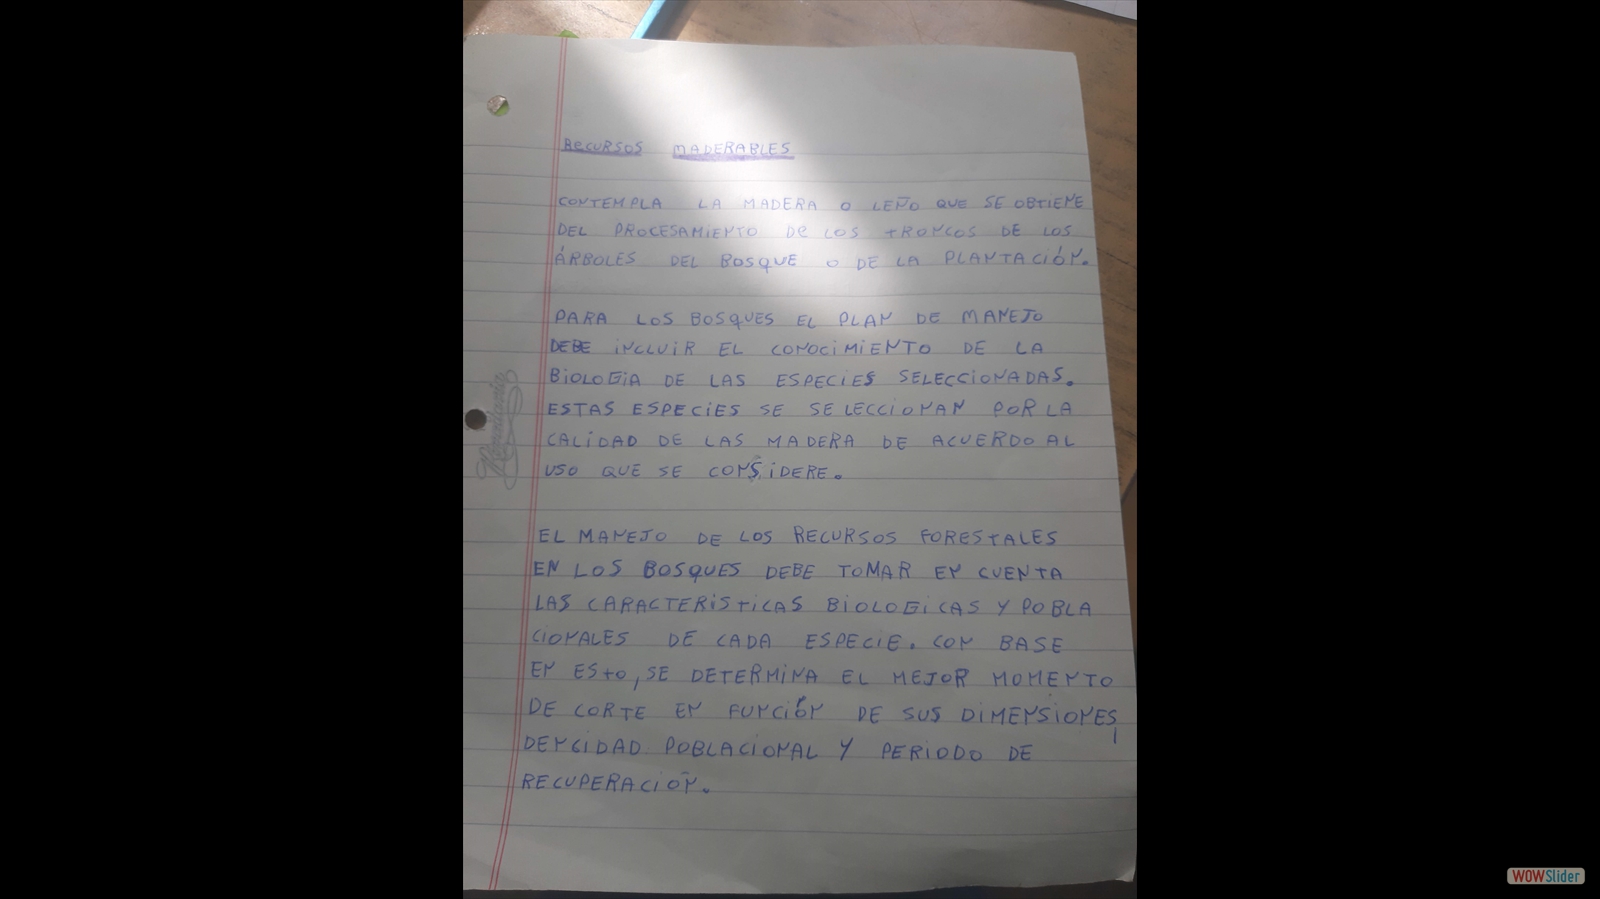 RECURSOS MADERABLES
CONTEMPLA LA MADERA O LEÑO QUE SE OBTIENE
DEL PROCESAMIENTO DE LOS TRONCOS DE LOS
ÁRBOLES DEL BOSQUE O DE LA PLANTACIÓN.
PARA LOS BOSQUES EL PLAN DE MANEJO
DEBE INCLUIR EL CONOCIMIENTO DE LA
BIOLOGIA DE LAS ESPECIES SELECCIONADAS.
ESTAS ESPECIES SE SELECCIONAN POR LA
CALIDAD DE LAS MADERA DE ACUERDO AL
USO QUE SE CONSIDERE.
EL MANEJO DE LOS RECURSOS FORESTALES
EN LOS BOSQUES DEBE TOMAR EN CUENTA
LAS CARACTERISTICAS BIOLOGICAS Y POBLA
CIONALES DE CADA ESPECIE. CON BASE
EN ESTO, SE DETERMINA EL MEJOR MOMENTO
DE CORTE EN FUNCIÓN DE SUS DIMENSIONES,
DENCIDAD POBLACIONAL Y PERIODO DE
RECUPERACIÓN.
WOWSlider